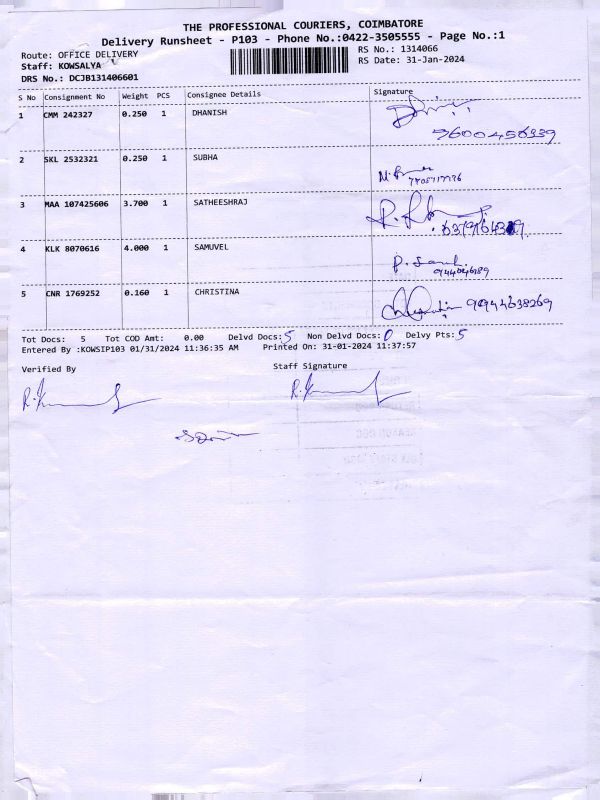 THE PROFESSIONAL COURIERS, COIMBATORE
Delivery Runsheet - P103 - Phone No.:0422-3505555 - Page No.:1
Route: OFFICE DELIVERY RS No.: 1314066
Staff: KOWSALYA RS Date: 31-Jan-2024
DRS No.: DCJB131406601
S No Consignment No Weight PCS Consignee Details Signature
1 CMM 242327 0.250 1 DHANISH
9600456339
2 SKL 2532321 0.250 1 SUBHA
3 MAA 107425606 3.700 1 SATHEESHRAJ
4 KLK 8070616 4.000 1 SAMUVEL
5 CNR 1769252 0.160 1 CHRISTINA 9944638269
Tot Docs: 5 Tot COD Amt: 0.00 Delvd Docs: 5 Non Delvd Docs: 0 Delvy Pts: 5
Entered By :KOWSIP103 01/31/2024 11:36:35 AM Printed On: 31-01-2024 11:37:57
Verified By Staff Signature